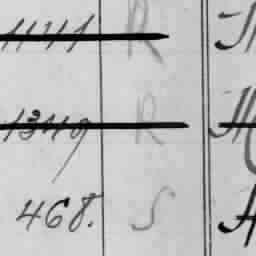 1141 R
1349 R
468. S